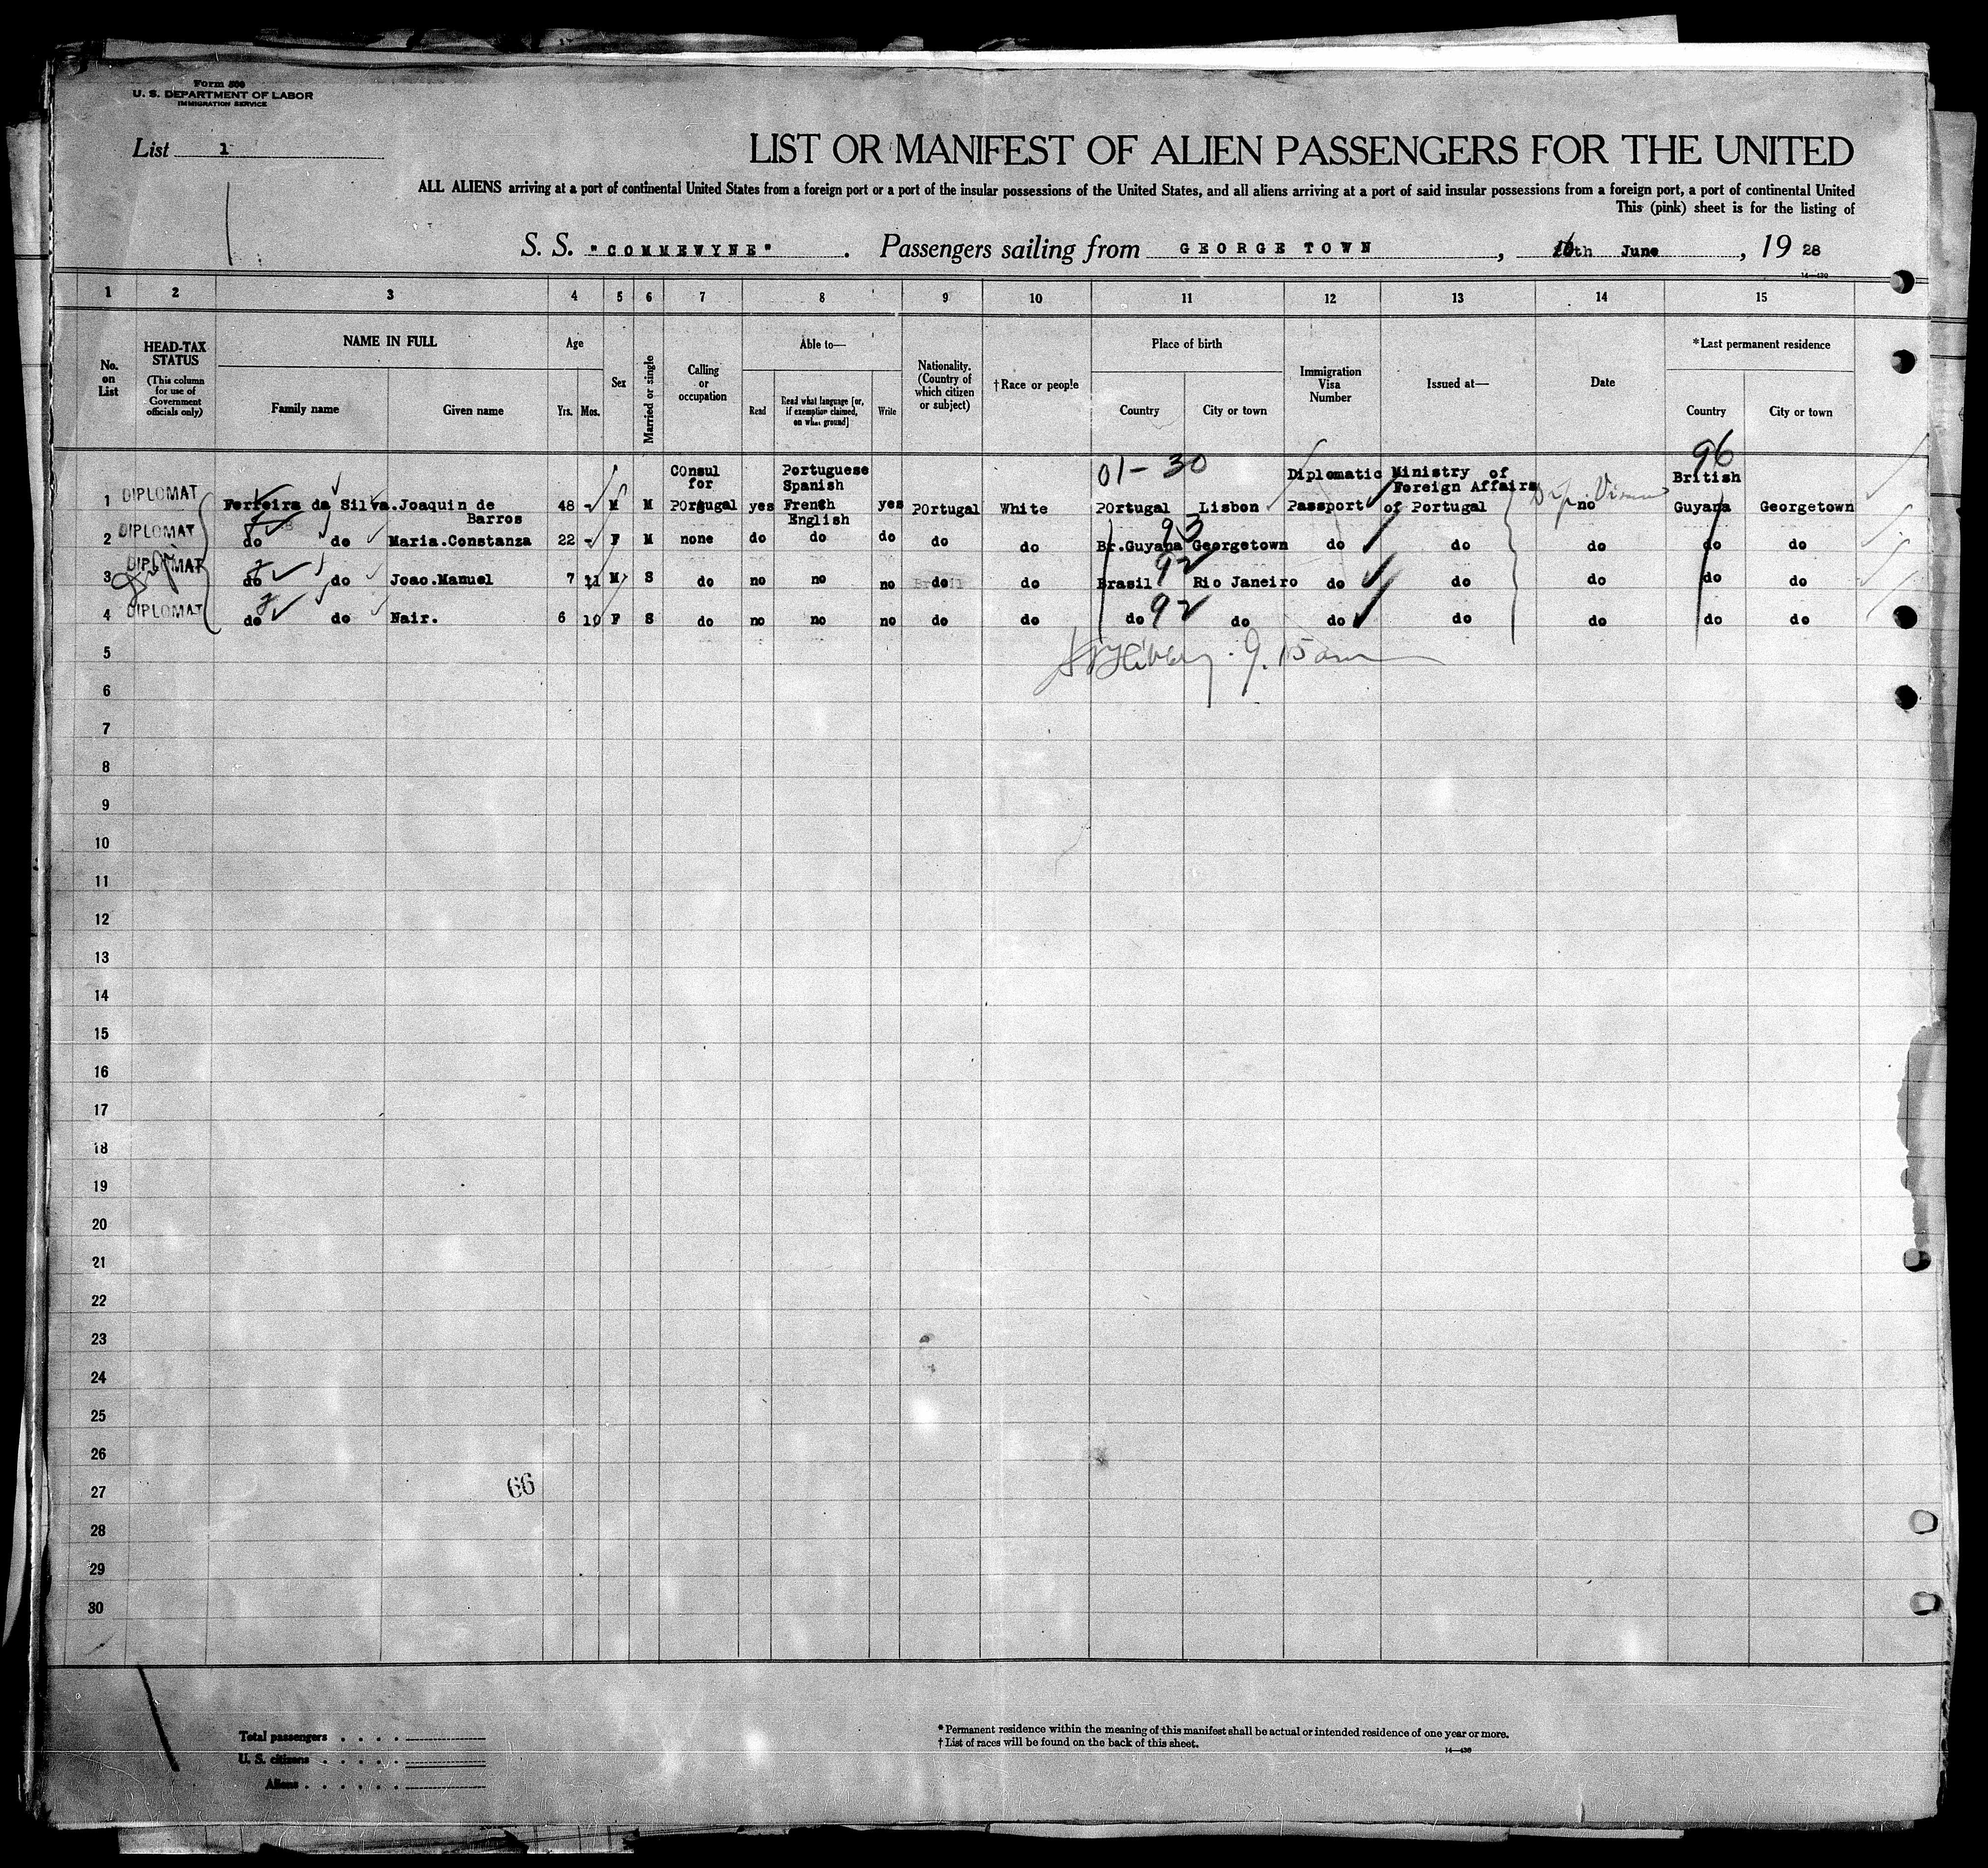 Form 500
U. S. DEPARTMENT OF LABOR
IMMIGRATION SERVICE
List 1
LIST OR MANIFEST OF ALIEN PASSENGERS FOR THE UNITED
ALL ALIENS arriving at a port of continental United States from a foreign port or a port of the insular possessions of the United States, and all aliens arriving at a port of said insular possessions from a foreign port, a port of continental United
This (pink) sheet is for the listing of
S. S. "COMMEWYNE" . Passengers sailing from GEORGE TOWN , th June , 19 28
14—430
1 2 3 4 5 6 7 8 9 10 11 12 13 14 15
No. on List
HEAD-TAX STATUS (This column for use of Government officials only)
NAME IN FULL
Family name Given name
Age
Yrs. Mos.
Sex
Married or single
Calling or occupation
Able to—
Read Read what language [or, if exemption claimed, on what ground] Write
Nationality. (Country of which citizen or subject)
†Race or people
Place of birth
Country City or town
Immigration Visa Number
Issued at—
Date
*Last permanent residence
Country City or town
01-30 96
1 DIPLOMAT Ferreira da Silva.Joaquin de Barros 48 - M M COnsul for POrtugal yes Portuguese Spanish French English yes POrtugal White POrtugal Lisbon Diplomatic Passport Ministry of Foreign Affairs of Portugal no British Guyana Georgetown
93
2 DIPLOMAT do do Maria.Constanza 22 - F M none do do do do do Br.Guyana Georgetown do do do do do
92
3 DIPLOMAT do do Joao.Manuel 7 11 M S do no no no do do Brasil Rio Janeiro do do do do do
4 DIPLOMAT do do Nair. 6 10 F S do no no no do do do 92 do do do do do do
9.15 am
5
6
7
8
9
10
11
12
13
14
15
16
17
18
19
20
21
22
23
24
25
26
27
66
28
29
30
Total passengers . . . .
U. S. citizens . . . . .
Aliens . . . . . .
* Permanent residence within the meaning of this manifest shall be actual or intended residence of one year or more.
† List of races will be found on the back of this sheet.
14—430